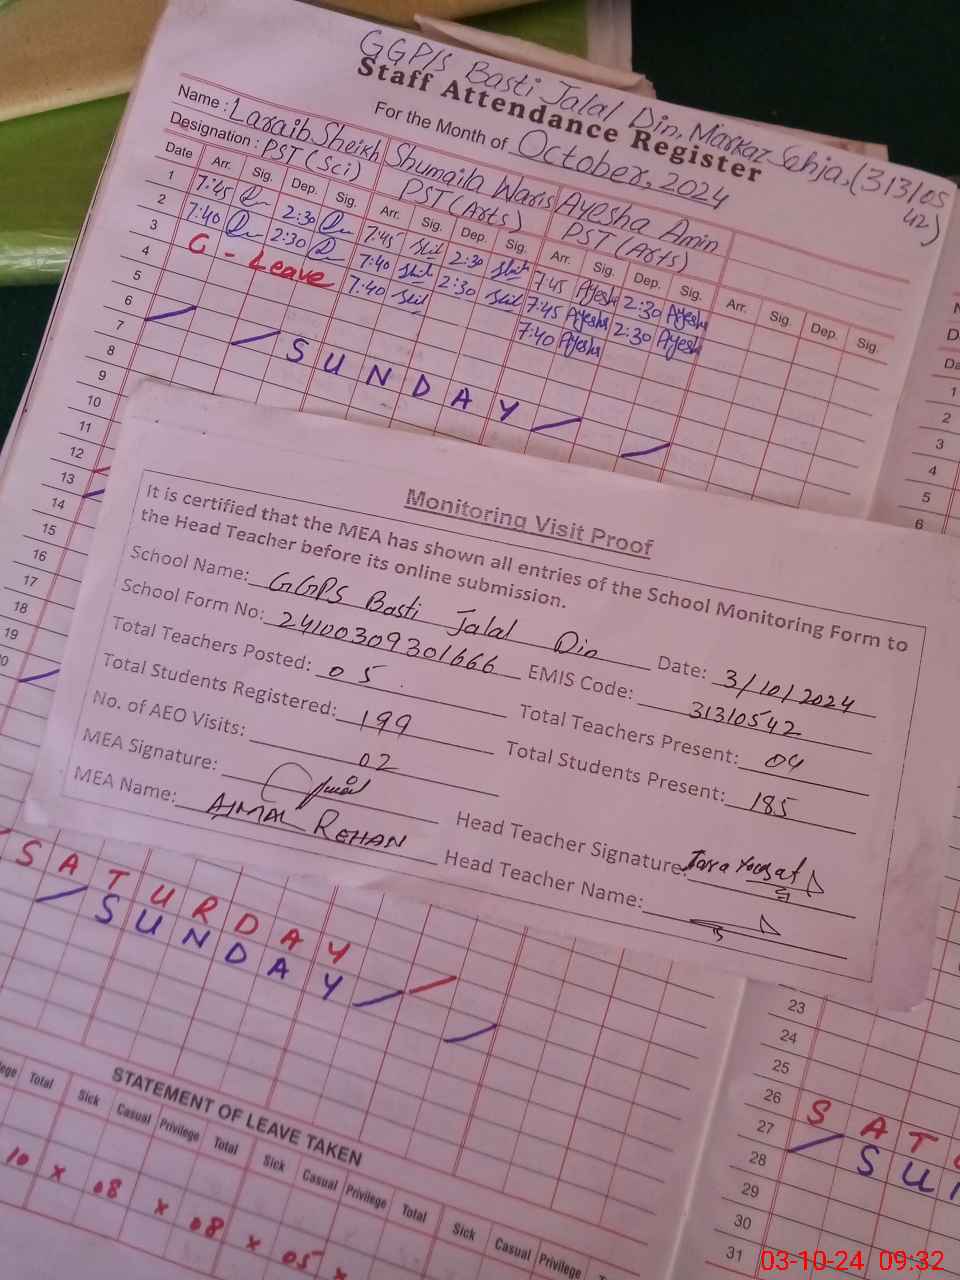 GGP/s Basti Jalal Din. Markaz Sehja. (313/05
42)
Staff Attendance Register
For the Month of October, 2024
Name : Laraib Sheikh Shumaila Waris Ayesha Amin
Designation : PST (Sci) PST (Arts) PST (Arts)
Date Arr. Sig. Dep. Sig. Arr. Sig. Dep. Sig. Arr. Sig. Dep. Sig. Arr. Sig. Dep. Sig.
1 7:45 2:30 7:45 2:30 7:45 Ayesh 2:30 Ayesha
2 7:40 2:30 7:40 2:30 7:45 Ayesha 2:30 Ayesh
3 C - Leave 7:40 7:40 Ayesha
4
5
6 SUNDAY
7
8
9
10
11
12
13
14
15
16
17
18
19
Monitoring Visit Proof
It is certified that the MEA has shown all entries of the School Monitoring Form to
the Head Teacher before its online submission.
School Name: GGPS Basti Jalal Din Date: 3/10/2024
School Form No: 24100309301666 EMIS Code: 31310542
Total Teachers Posted: 05 Total Teachers Present: 04
Total Students Registered: 199 Total Students Present: 185
No. of AEO Visits: 02
MEA Signature: Head Teacher Signature:
MEA Name: AJMAL REHAN Head Teacher Name:
SATURDAY
SUNDAY
STATEMENT OF LEAVE TAKEN
Total Sick Casual Privilege Total Sick Casual Privilege Total Sick Casual Privilege
10 x 08 x 08 x 05 x
1
2
3
4
5
6
23
24
25
26 SAT
27 SU
28
29
30
31
03-10-24 09:32